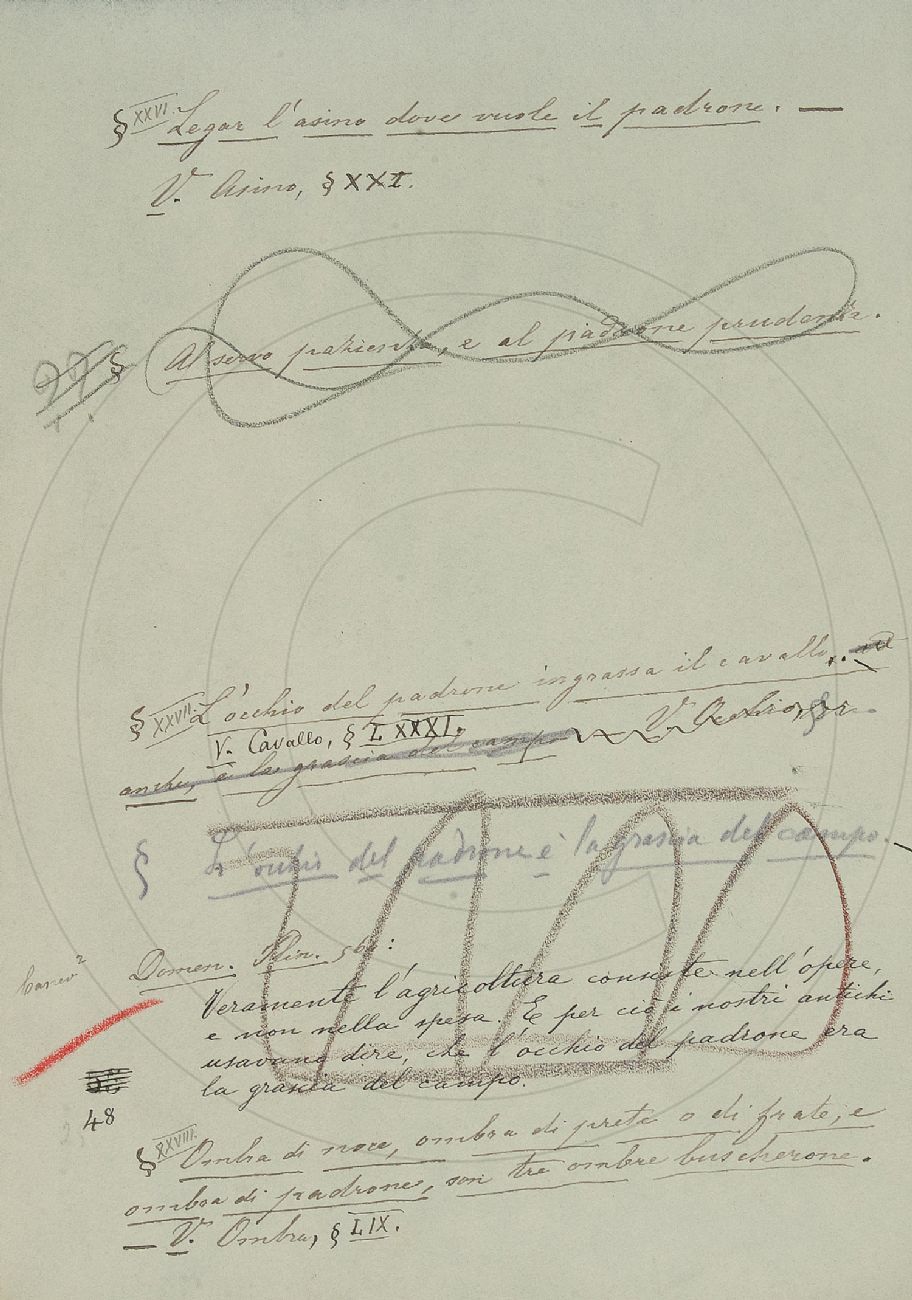 § XXVI. Legar l'asino dove vuole il padrone. —
V. Asino, § XXI.
27 § Al servo pazienza, e al padrone prudenza.
§ XXVII. L'occhio del padrone ingrassa il cavallo..
V. Cavallo, § LXXXI. V. Occhio, §
anche, è la grascia del campo
§ L'occhio del padrone è la grascia del campo.
Domen. Rin. 56:
Veramente l'agricoltura consiste nell'opere,
e non nella spesa. E per ciò i nostri antichi
usavano dire, che l'occhio del padrone era
la grascia del campo.
48
§ XXVIII. Ombra di noce, ombra di prete o di frate, e
ombra di padrone, son tre ombre buscherone.
— V. Ombra, § LIX.